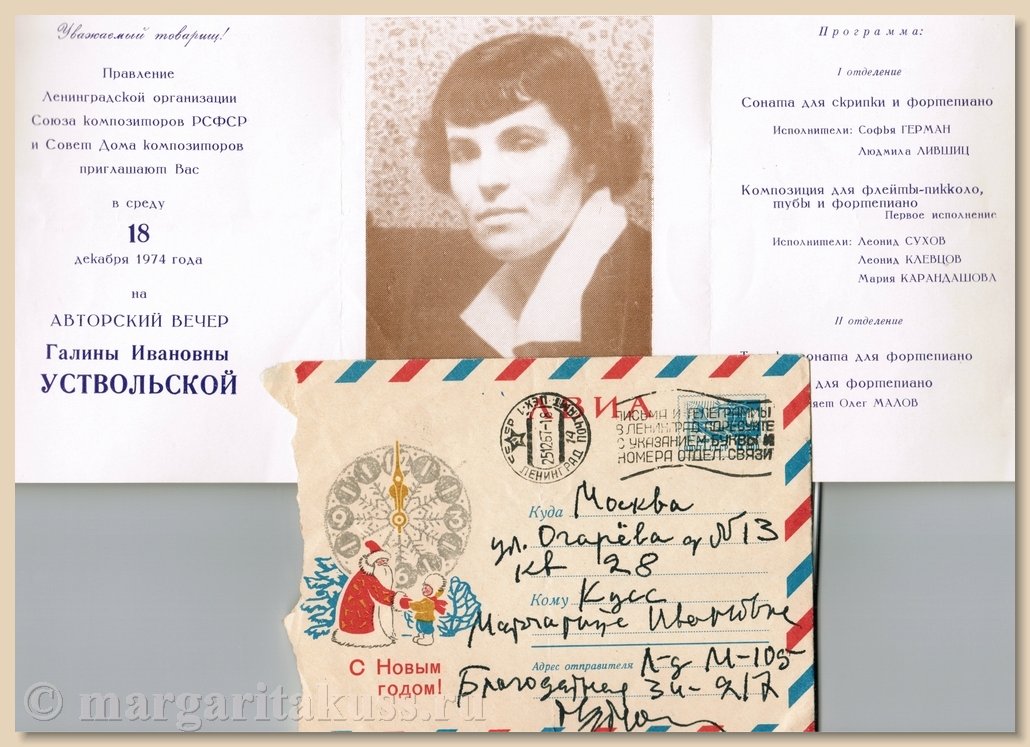 Уважаемый товарищ!
Правление
Ленинградской организации
Союза композиторов РСФСР
и Совет Дома композиторов
приглашают Вас
в среду
18
декабря 1974 года
на
АВТОРСКИЙ ВЕЧЕР
Галины Ивановны
УСТВОЛЬСКОЙ
Программа:
I отделение
Соната для скрипки и фортепиано
Исполнители: Софья ГЕРМАН
Людмила ЛИВШИЦ
Композиция для флейты-пикколо,
тубы и фортепиано
Первое исполнение
Исполнители: Леонид СУХОВ
Леонид КЛЕВЦОВ
Мария КАРАНДАШОВА
II отделение
соната для фортепиано
для фортепиано
Олег МАЛОВ
АВИА
СССР
ПОЧТАМТ
ЛЕНИНГРАД
ПИСЬМА И ТЕЛЕГРАММЫ
В ЛЕНИНГРАД АДРЕСУЙТЕ
С УКАЗАНИЕМ БУКВЫ И
НОМЕРА ОТДЕЛ. СВЯЗИ
Куда Москва
ул. Огарёва д №13
кв 28
Кому Кусс
Маргарите Ивановне
Адрес отправителя Л-д М-105
Благодатная
С Новым
годом!
© margaritakuss.ru